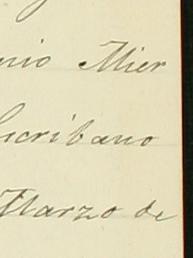 nio Mier
Escribano
Marzo de